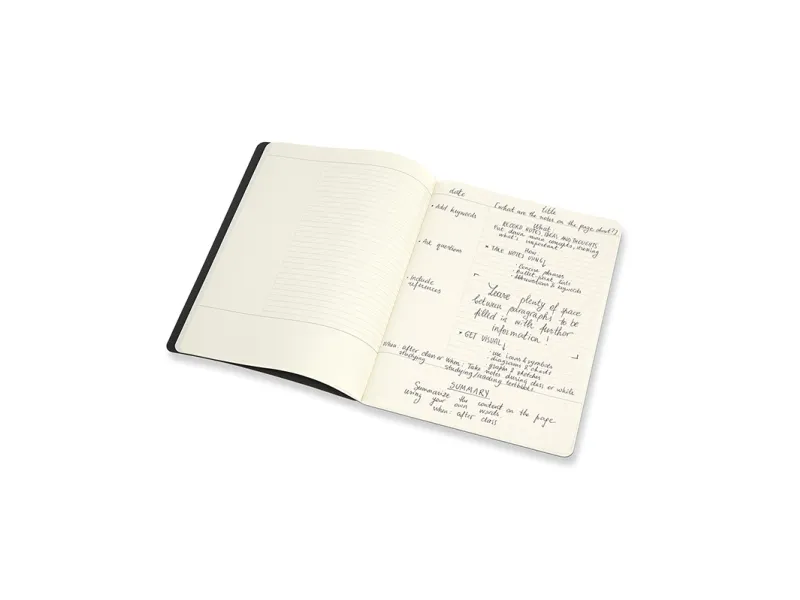 date
title
(what are the notes on the page about?)
• Add keywords
• Ask questions
• Include
references
When: after class or
studying
What
RECORD NOTES, IDEAS AND THOUGHTS
Put down main concepts, marking
what's important
How
• TAKE NOTES USING ↓
• Concise phrases
• Bullet point lists
• Abbreviations & keywords
Leave plenty of space
between paragraphs to be
filled in with further
information!
• GET VISUAL ↓
• use icons & symbols
diagrams & charts
graphs & sketches
When: Take notes during class or while
studying/reading textbooks.
SUMMARY
Summarize the content on the page
using your own words
when: after class